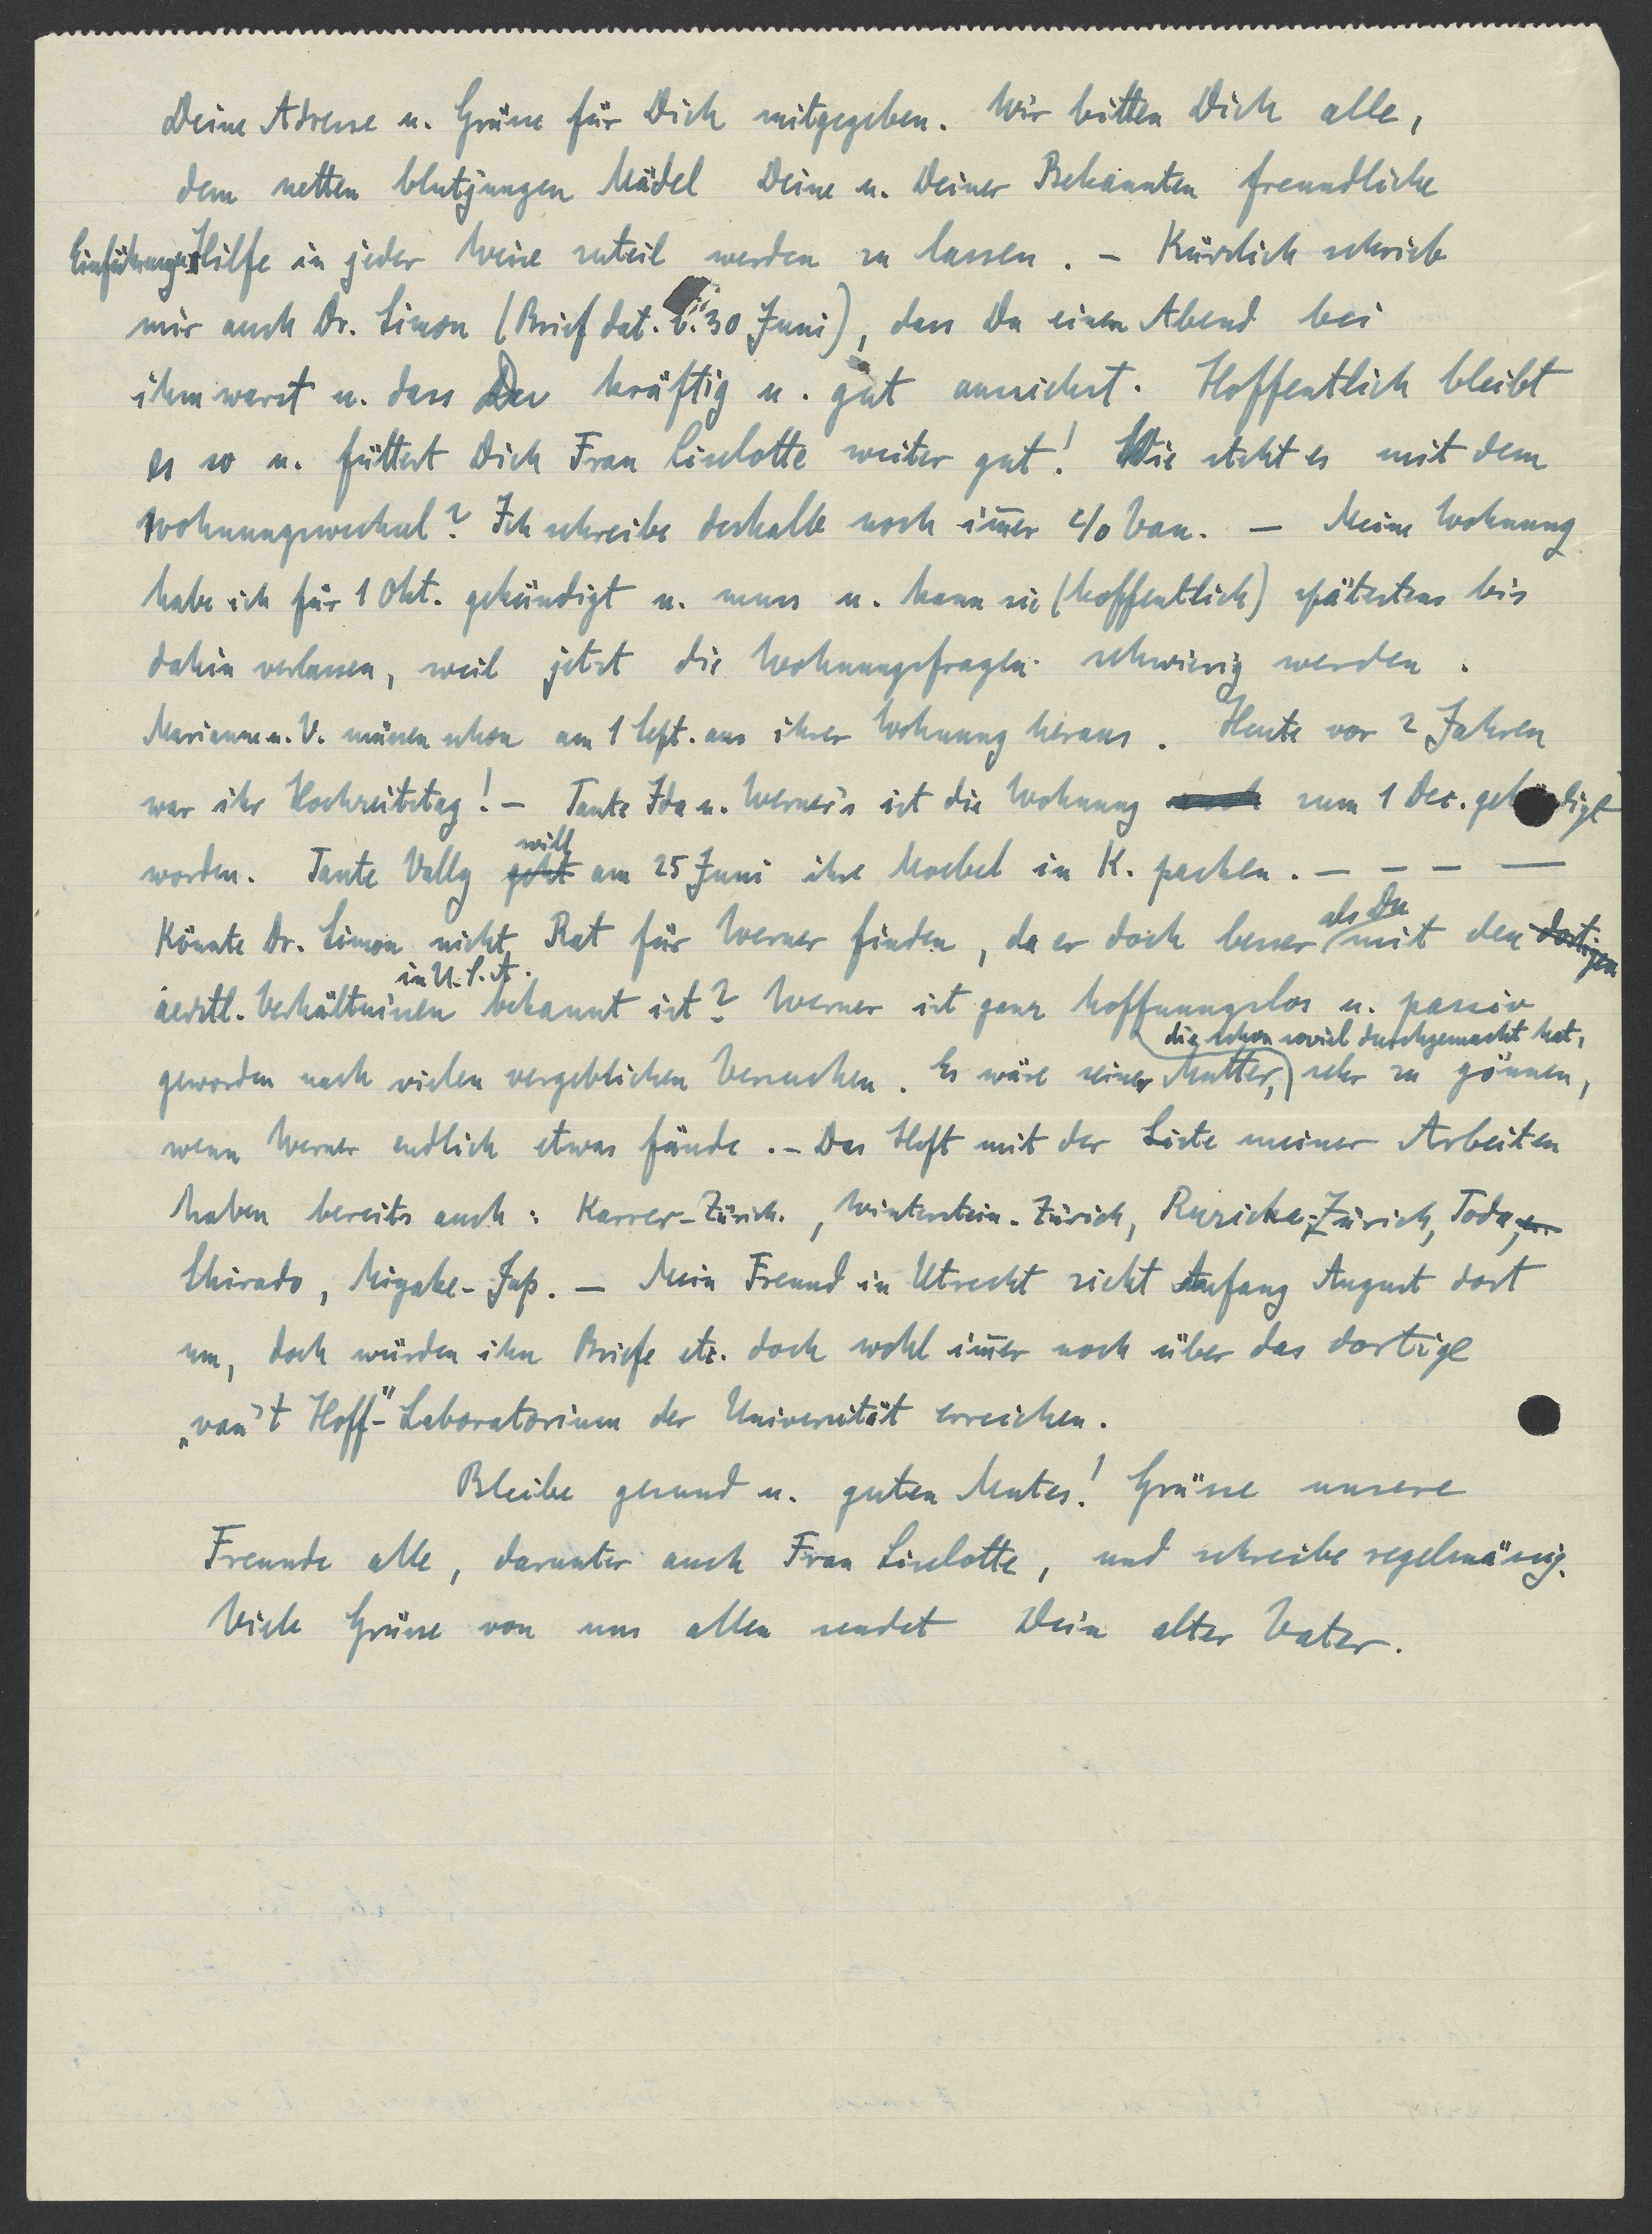 Deine Adresse u. Grüsse für Dich mitgegeben. Wir bitten Dich alle,
dem netten blutjungen Mädel Deine u. Deiner Bekannten freundliche
Einführungshilfe in jeder Weise zuteil werden zu lassen. – Kürzlich schrieb
mir auch Dr. Simon (Brief dat. v. 30 Juni), dass Du einen Abend bei
ihm warst u. dass Du kräftig u. gut aussiehst. Hoffentlich bleibt
es so u. füttert Dich Frau Liselotte weiter gut! Wie steht es mit dem
Wohnungswechsel? Ich schreibe deshalb noch im̄er c/o Van. – Meine Wohnung
habe ich für 1 Okt. gekündigt u. muss u. kann sie (hoffentlich) spätestens bis
dahin verlassen, weil jetzt die Wohnungsfragen schwierig werden.
Marianne u. V. müssen schon am 1 Sept. aus ihrer Wohnung heraus. Heute vor 2 Jahren
war ihr Hochzeitstag! – Tante Ida u. Werner's ist die Wohnung auch zum 1 Dec. gekündigt
worden. Tante Vally geht will am 25 Juni ihre Moebel in K. packen. – – – – –
Könnte Dr. Simon nicht Rat für Werner finden, da er doch besser als Du mit den dortigen
aerztl. Verhältnissen in U.S.A. bekannt ist? Werner ist ganz hoffnungslos u. passiv
geworden nach vielen vergeblichen Versuchen. Es wäre seiner Mutter, die schon soviel durchgemacht hat, sehr zu gönnen,
wenn Werner endlich etwas fände. – Das Heft mit der Liste meiner Arbeiten
haben bereits auch: Karrer-Zürich, Winterstein-Zürich, Ruzicka-Zürich, Toda,
Shirado, Miyake-Jap. – Mein Freund in Utrecht zieht Anfang August dort
um, doch würden ihn Briefe etc. doch wohl im̄er noch über das dortige
„van't Hoff"-Laboratorium der Universität erreichen.
Bleibe gesund u. guten Mutes! Grüsse unsere
Freunde alle, darunter auch Frau Liselotte, und schreibe regelmässig.
Viele Grüsse von uns allen sendet Dein alter Vater.